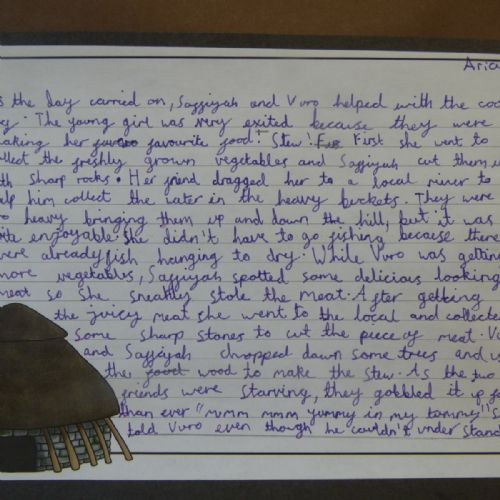 Aria
s the day carried on, Saffiyah and Vuro helped with the coo
. The young girl was very exited because they were
aking her favourite food: Stew! First she went to
llect the freshly grown vegetables and Saffiyah cut them u
th sharp rocks. Her friend dragged her to a local river to
elp him collect the later in the heavy buckets. They were
o heavy bringing them up and down the hill, but it was
ite enjoyable. She didn't have to go fishing because there
were already fish hanging to dry. While Vuro was getting
more vegetables, Saffiyah spotted some delicious looking
meat so she sneakily stole the meat. After getting
the juicy meat she went to the local and collected
some sharp stones to cut the piece of meat. V
and Saffiyah chopped down some trees and u
the wood to make the stew. As the two
friends were starving, they gobbled it up fa
than ever "mmm mmm yummy in my tummy" S
told Vuro even though he couldn't understand